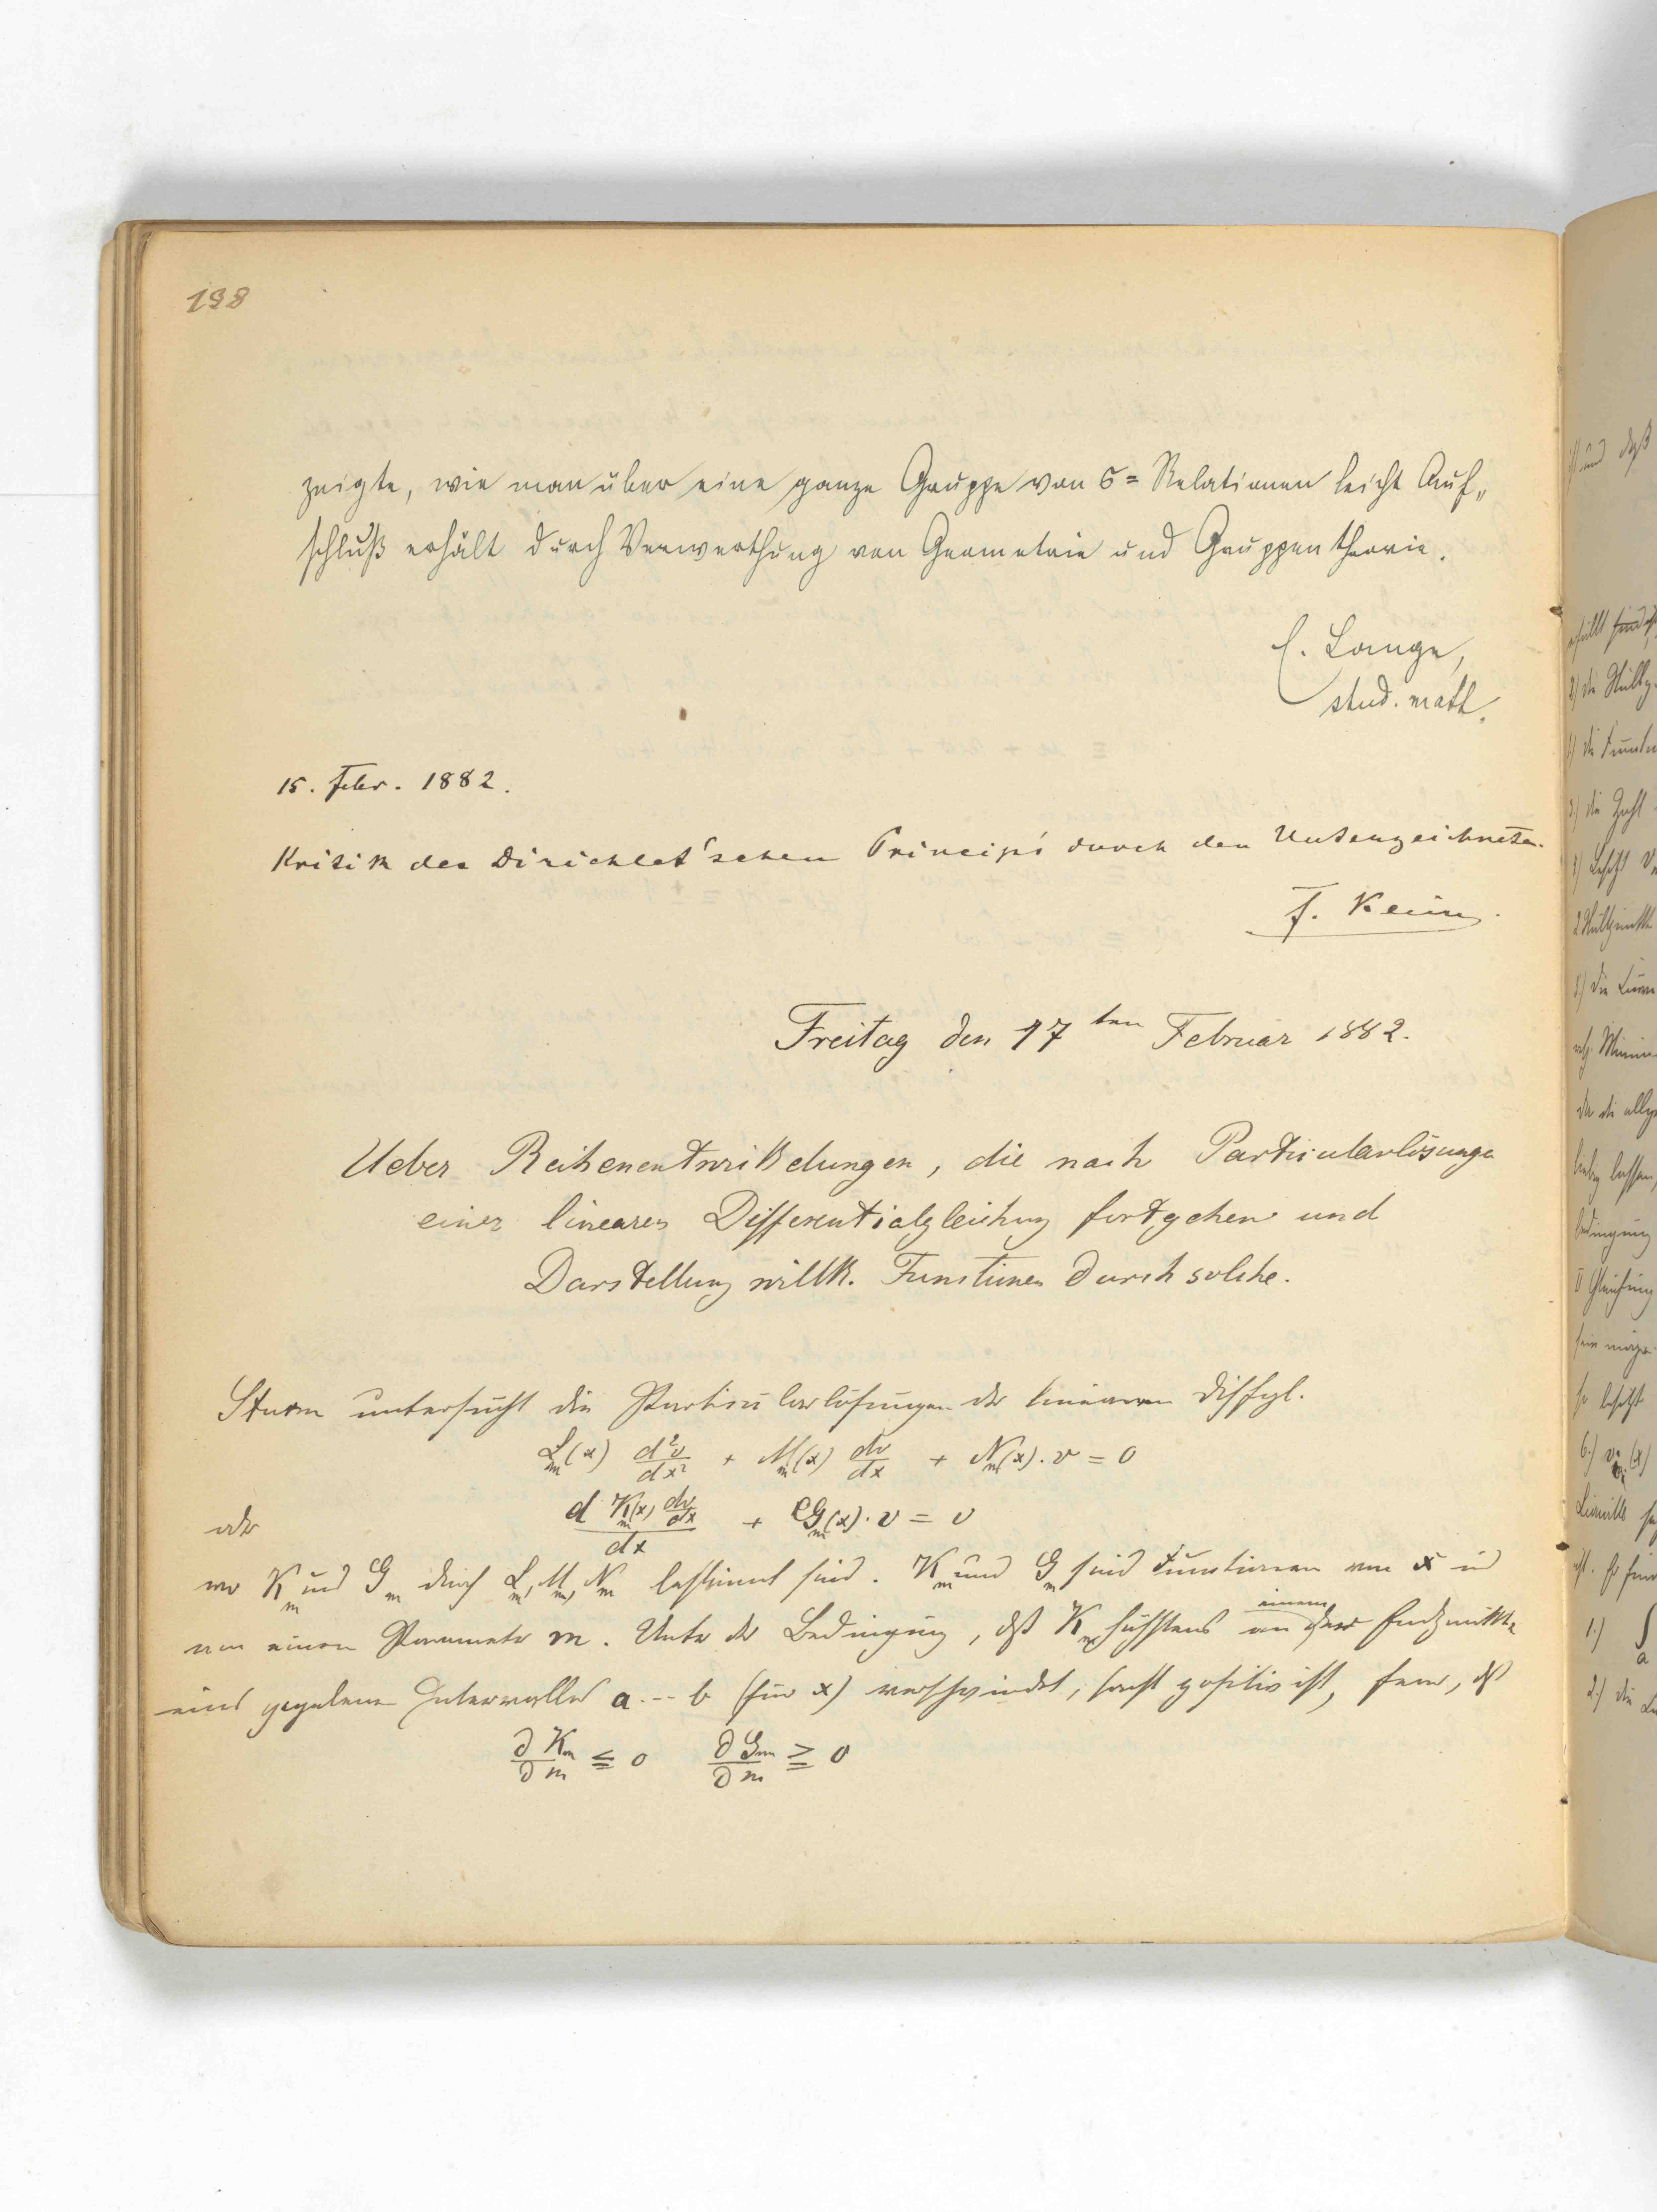 198
zeigte, wie man über eine ganze Gruppe von σ= Relationen leicht Auf„
schluß erhält durch Verwerthung von Geometrie und Gruppentheorie.
E. Lange,
stud. math.
15. Febr. 1882.
Kritik des Dirichlet'schen Princips durch den Unterzeichneten.
F. Klein
Freitag den 17ten Februar 1882.
Ueber Reihenentwickelungen, die nach Particularlösungen
einer linearen Differentialgleichung fortgehen und
Darstellung willk. Functionen durch solche.
Sturm untersucht die Particularlösungen der linearen Diffgl.
L_m(x) d²v/dx² + M_m(x) dv/dx + N_m(x) . v = 0
oder
d K_m(x) dv/dx / dx + G_m(x) . v = 0
wo K_m und G_m durch L_m, M_m, N_m bestimmt sind. K_m und G_m sind Functionen von x und
von einem Parameter m. Unter der Bedingung, dß K_m höchstens an einem der Endpunkte
eines gegebenen Intervalles a --- b (für x) verschwindet, sonst positiv ist, ferner, dß
∂K_m/∂m ≦ 0 ∂G_m/∂m ≧ 0
ist und daß
erfüllt
2) die
die
3) die Zahl
die
da die
lassen,
bedingung
Gleichung
6.)
1.) ∫
a
2.) die